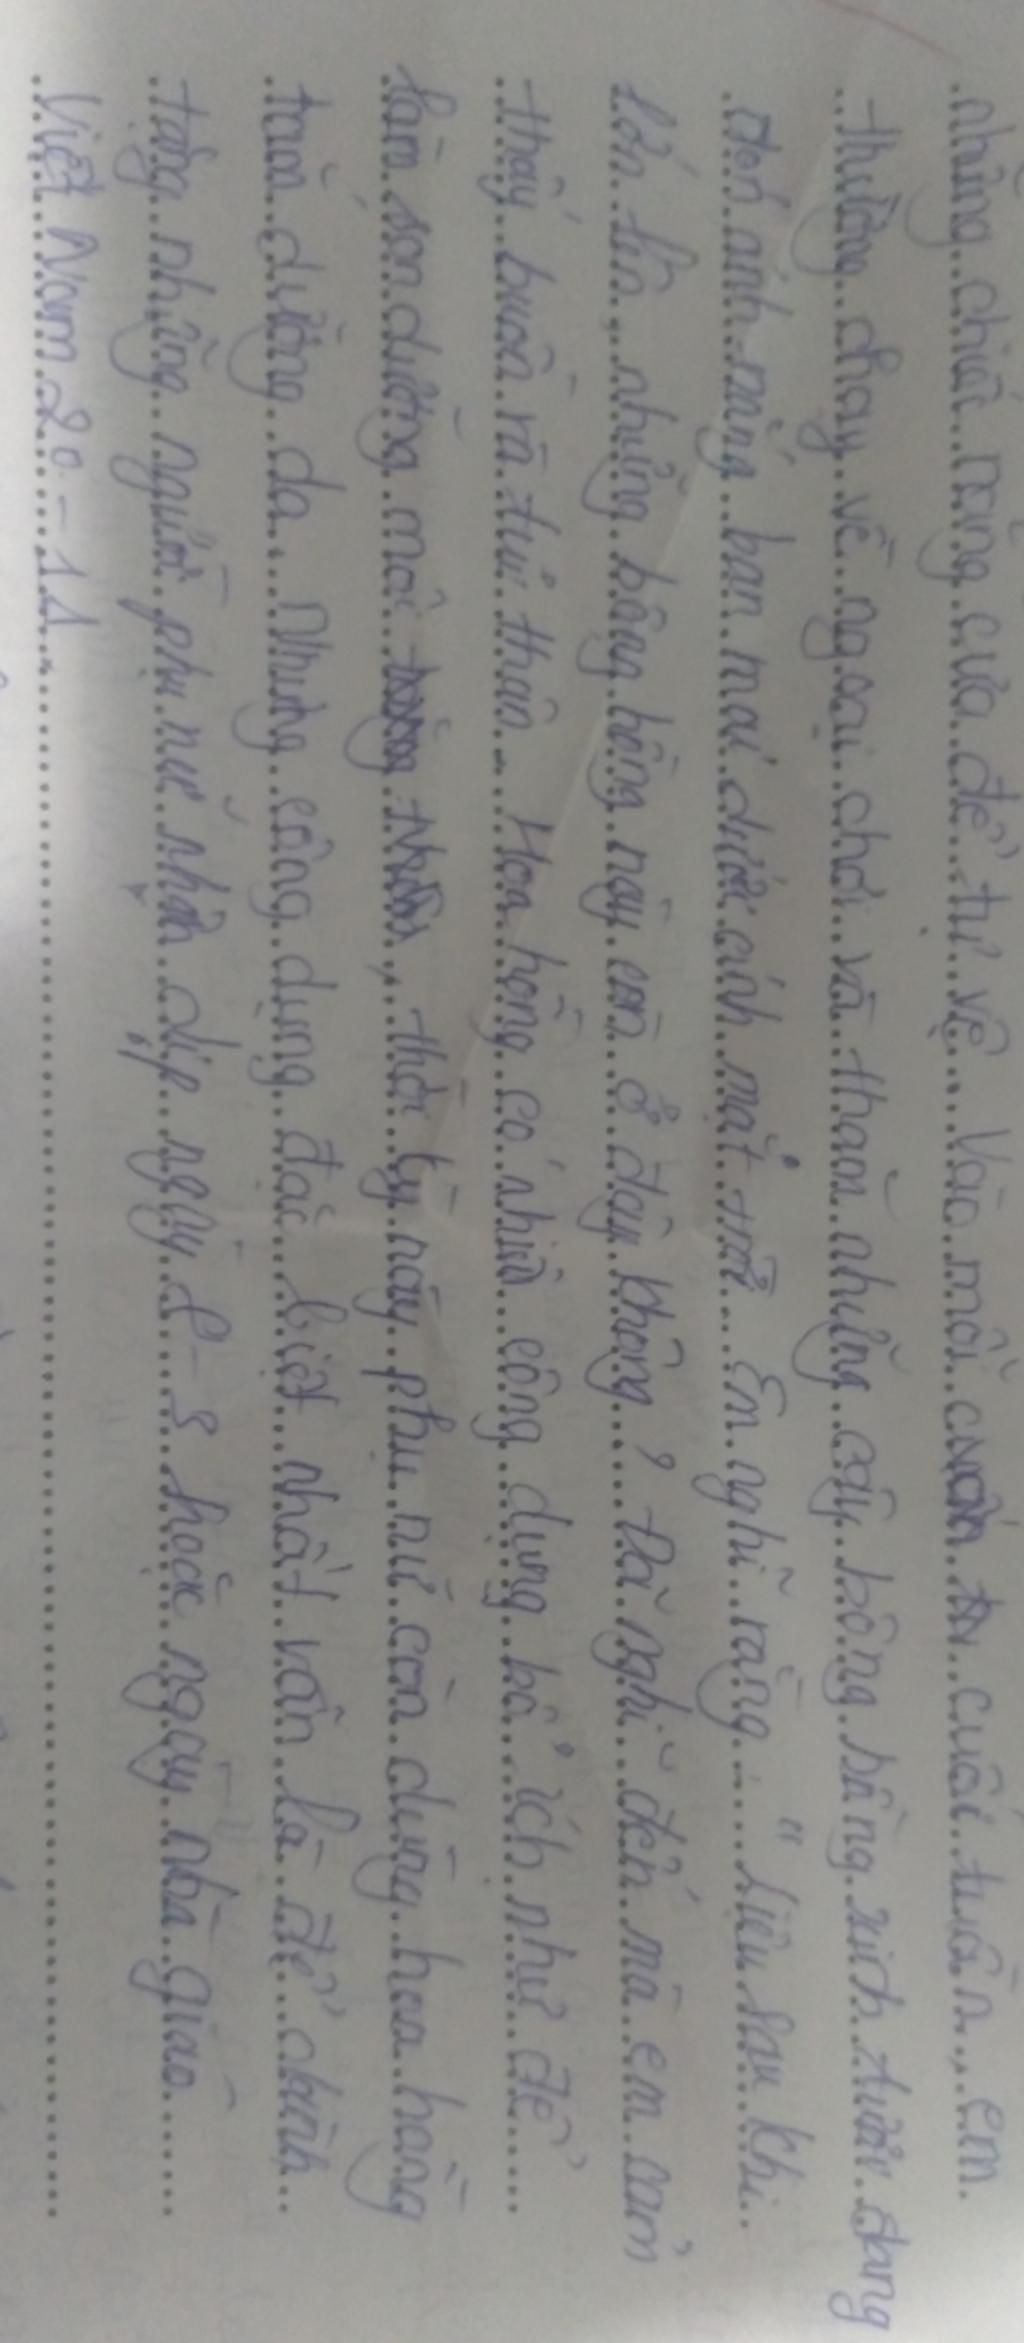 những chiếc năng của để tự vệ. Vào mỗi cuối tuần, em
thường chạy về ngoại chơi và thăm những cây bông hồng xinh tươi đang
đón ánh nắng ban mai dưới ánh mặt trời. Em nghĩ rằng: " liệu sau khi
lớn lên, những bông hồng này còn ở đây không? Đã nghĩ đến mà em cảm
thấy buồn và tủi thân. Hoa hồng có nhiều công dụng bổ ích như để
làm son dưỡng môi, thời kỳ này phụ nữ còn dùng hoa hồng
toàn dưỡng da. Nhưng công dụng đặc biệt nhất vẫn là để chính
tặng những người phụ nữ nhân dịp ngày 8-3 hoặc ngày nhà giáo
Việt Nam 20-11.